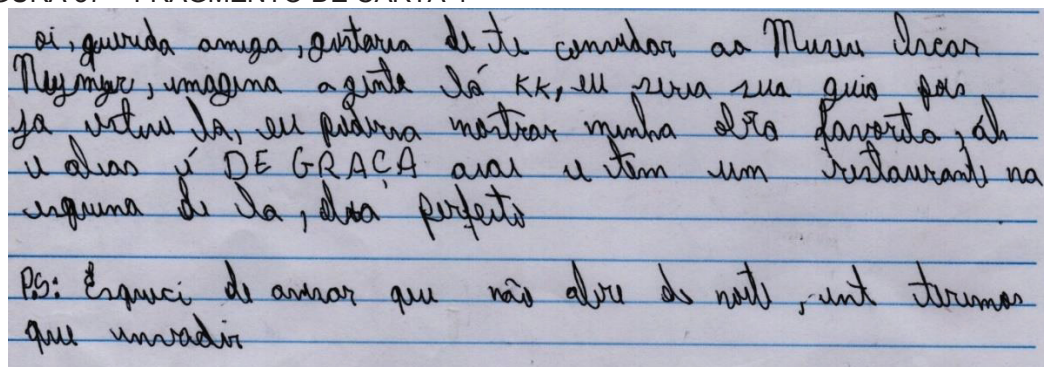 FRAGMENTO DE CARTA 1
oi, querida amiga, gostaria de te convidar ao Museu Oscar
Neymyer, imagina a gente lá KK, eu seria sua guia pois
ja estive la, eu poderia mostrar minha obra favorita, ah
e alias é DE GRAÇA auau e tem um restaurante na
esquina de la, dia perfeito
PS: Esqueci de avisar que não abre de noite, ent teremos
que invadir